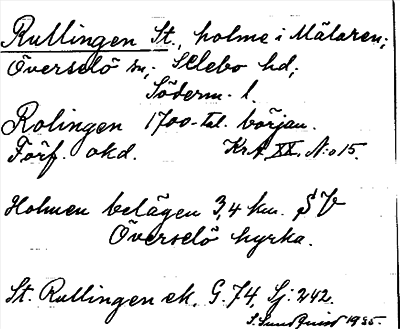 Rullingen St., holme i Mälaren;
Överselö sn; Selebo hd;
Söderm. l.
Rolingen 1700-tal. början.
Förf. okd. KrA XX. N:o 15.
Holmen belägen 3,4 km. SV
Överselö kyrka.
St. Rullingen ek. G. 74, Sj: 242.
S. Sundquist 1935.